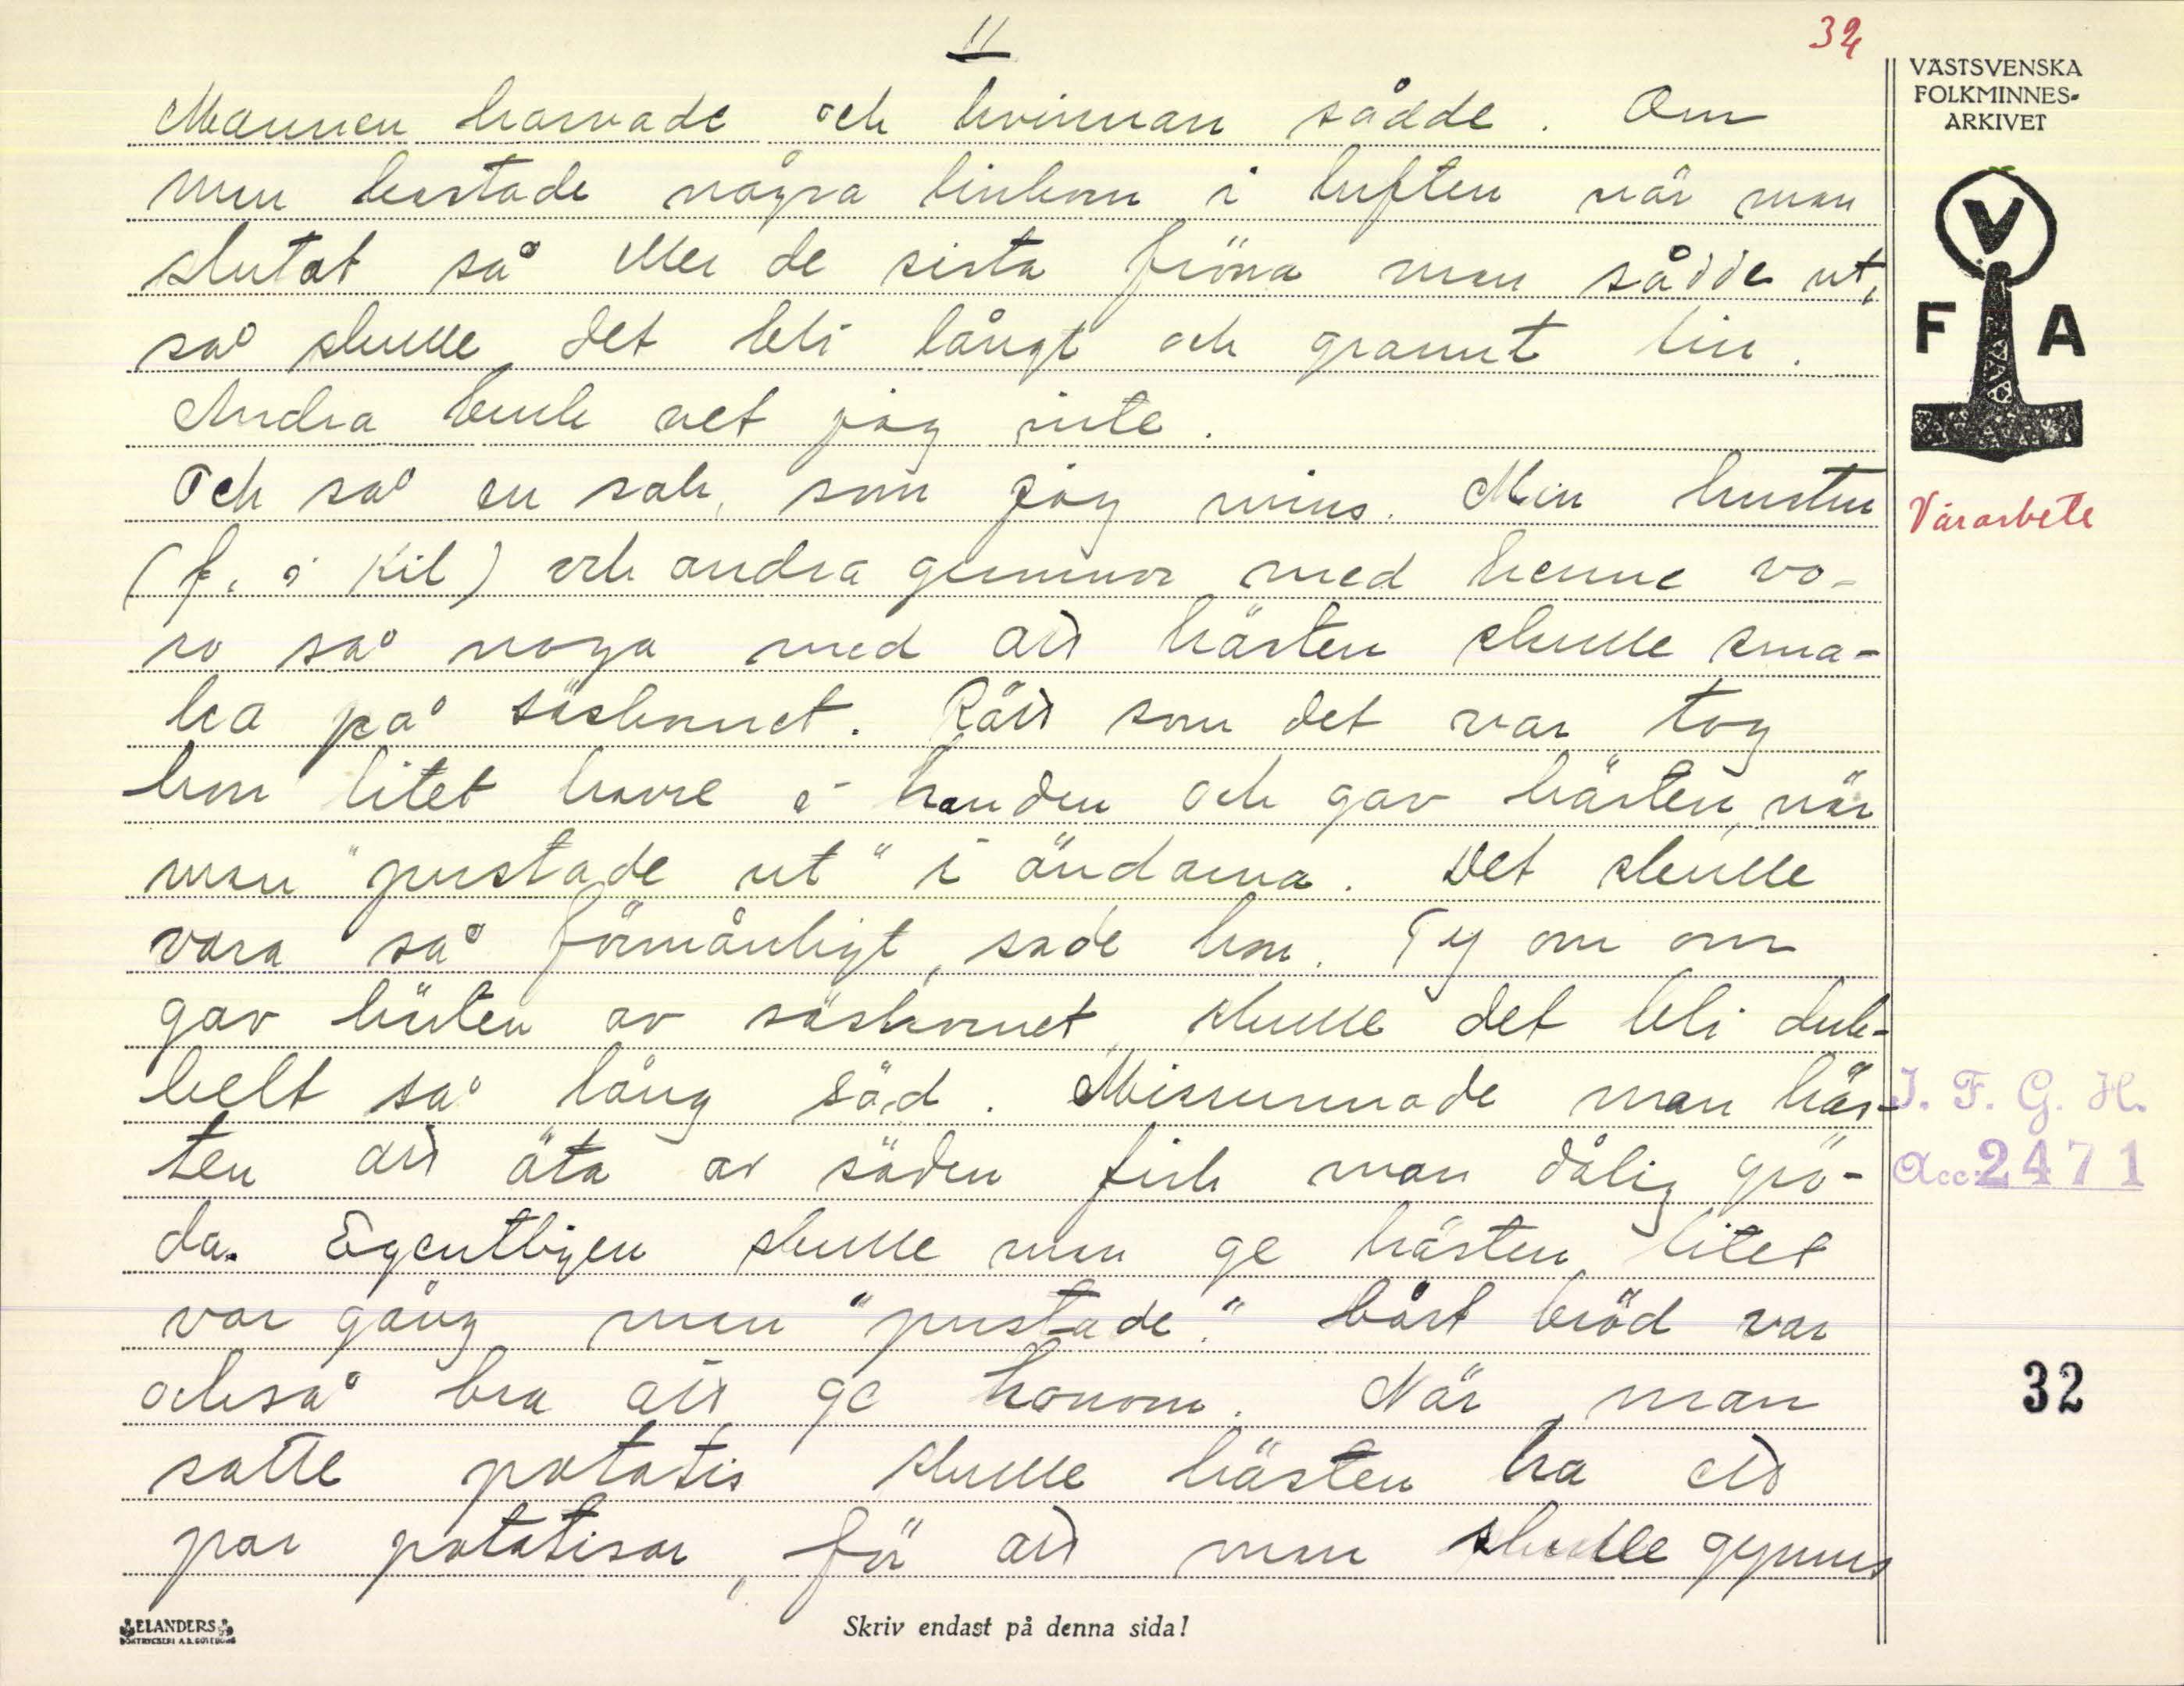 11
32
Mannen harvade och kvinnan sådde. Om
man kastade några linkorn i luften när man
slutat så eller de sista fröna man sådde ut,
så skulle det bli långt och grannt lin.
Andra bruk vet jag inte.
Och så en sak, som jag mins. Min hustru
(f. i Kil) och andra gummor med henne vo-
ro så noga med att hästen skulle sma-
ka på såskornet. Rätt som det var tog
hon litet havre i handen och gav hästen, när
man "pustade ut" i ändarna. Det skulle
vara så förmånligt, sade hon. Ty om om
gav hästen av såskornet, skulle det bli dub-
belt så lång säd. Missunnade man häs-
ten att äta av säden fick man dålig grö-
da. Egentligen skulle man ge hästen litet
var gång man "pustade." Vårt bröd var
också bra att ge honom. När man
satte potatis skulle hästen ha ett
par potatisar, för att man skulle gynnas
VÄSTSVENSKA
FOLKMINNES-
ARKIVET
V
F A
Vårarbete
I. F. G. H.
Acc. 2471
32
ELANDERS
BOKTRYCKERI A.B. GÖTEBORG
Skriv endast på denna sida!